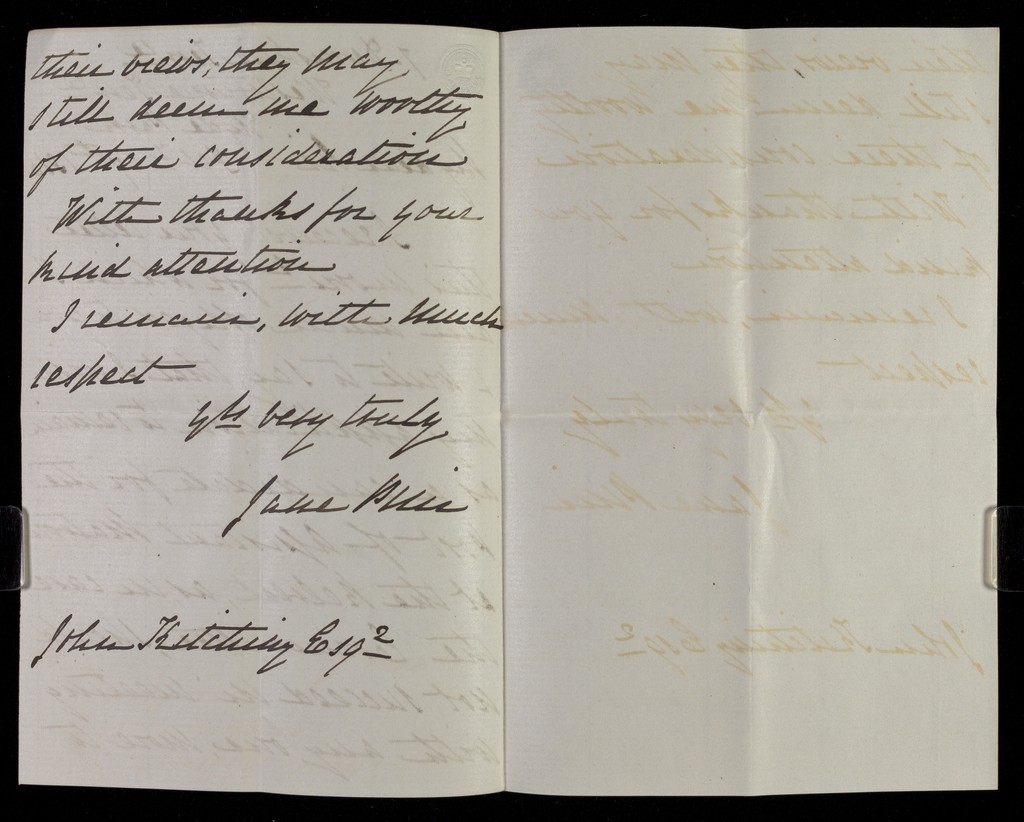 their views, they may
still deem me worthy
of their consideration
With thanks for your
kind attention
I remain, with much
respect
yrs very truly
Jane
John Kitching Esqre